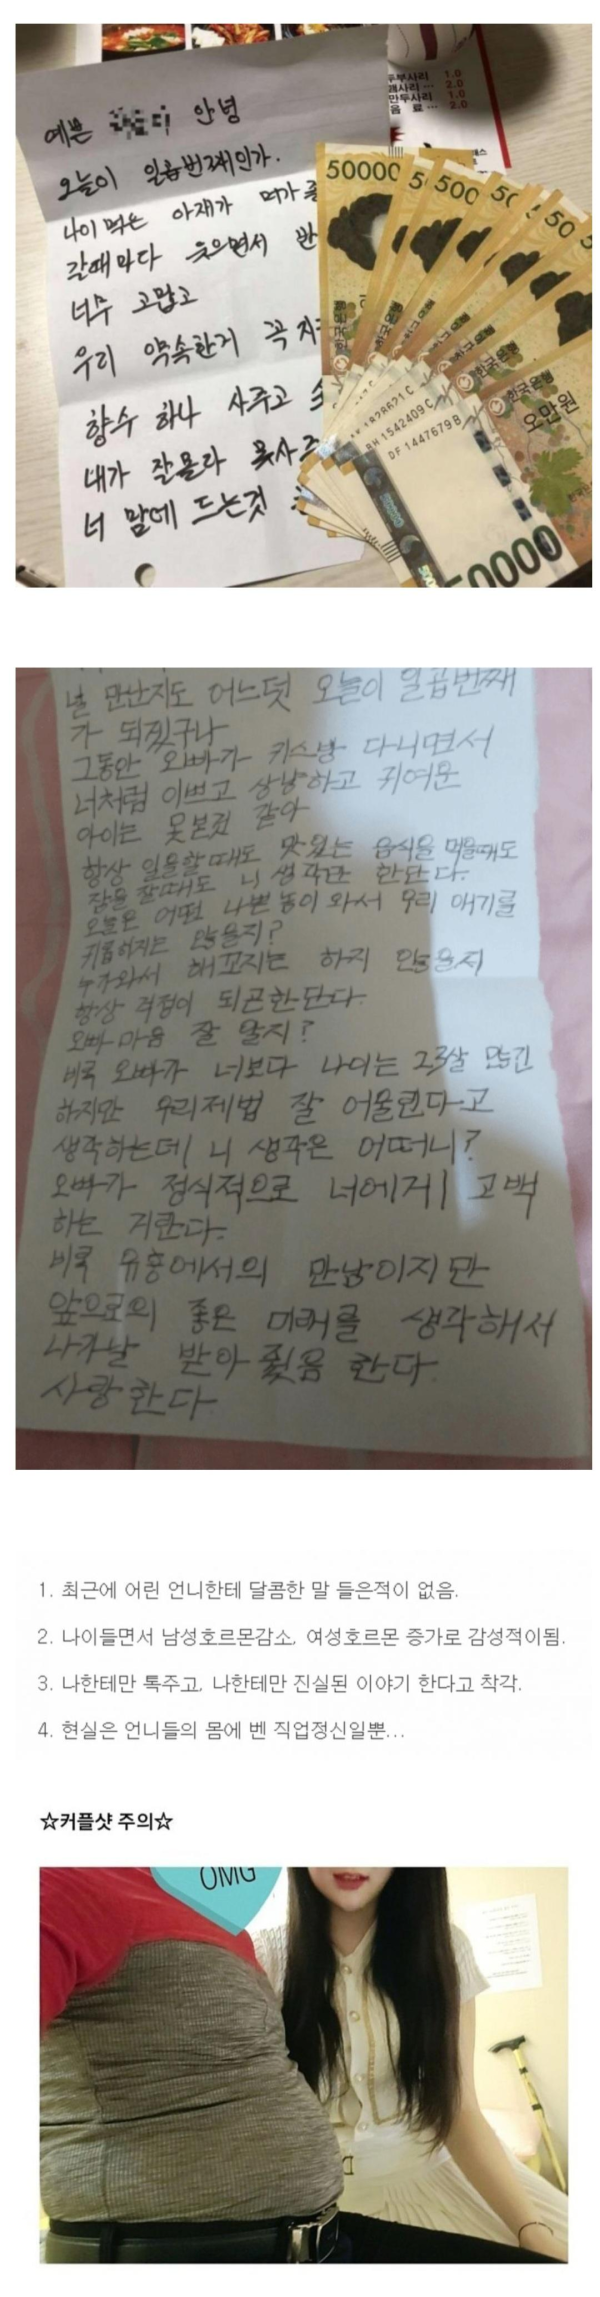 예쁜 안녕
오늘이 일곱번째인가.
나이 먹은 아재가 머가 좋
갈때마다 웃으면서 반
너무 고맙고
우리 약속한거 꼭 지키
향수 하나 사주고
내가 잘몰라 못사주
너 맘에 드는것
두부사리 1.0
2.0
만두사리 1.0
음 료 2.0
50000
500
50
한국은행
한국은행
한국은행
한국은행
오만원
BH 1542409 C
DF 1447679 B
50000
널 만난지도 어느덧 오늘이 일곱번째
가 되겠구나
그동안 오빠가 키스방 다니면서
너처럼 이쁘고 상냥하고 귀여운
아이는 못본것 같아
항상 일을할때도 맛있는 음식을 먹을때도
잠을 잘때도 니 생각만 한단다.
오늘은 어떤 나쁜놈이 와서 우리 애기를
귀롭히지는 않을지?
누가와서 해꼬지는 하지 않을지
항상 걱정이 되곤한단다.
오빠 마음 잘 알지?
비록 오빠가 너보다 나이는 23살 많긴
하지만 우리제법 잘 어울린다고
생각하는데 니 생각은 어떠니?
오빠가 정식적으로 너에게 고백
하는 거란다.
비록 유흥에서의 만남이지만
앞으로의 좋은 미래를 생각해서
나가날 받아줬음 한다.
사랑한다
1. 최근에 어린 언니한테 달콤한 말 들은적이 없음.
2. 나이들면서 남성호르몬감소, 여성호르몬 증가로 감성적이됨.
3. 나한테만 톡주고, 나한테만 진실된 이야기 한다고 착각.
4. 현실은 언니들의 몸에 벤 직업정신일뿐...
☆커플샷 주의☆
OMG